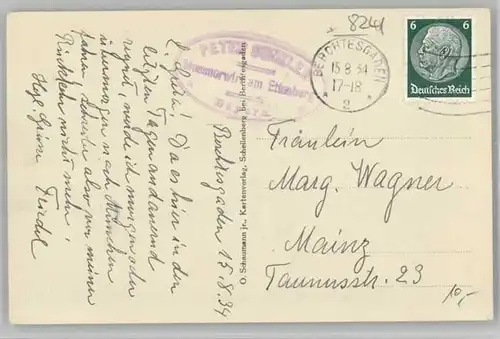 8241
PETER
Mesnerwirt am Ettenberg
BERCHTESGADEN
15.8.34
17-18
2
6 6
Deutsches Reich
Berchtesgaden 15.8.34
L. Da es hier in den
letzten Tagen andauernd
regnet, werde ich morgen oder
übermorgen nach München
fahren. Schreibe also vor meiner
Rückkehr nicht mehr!
Hzl. Grüsse Friedel
O. Schaumann jr., Kartenverlag, Schellenberg bei Berchtesgaden
Fräulein
Marg. Wagner
Mainz
Taunusstr. 23
10,-